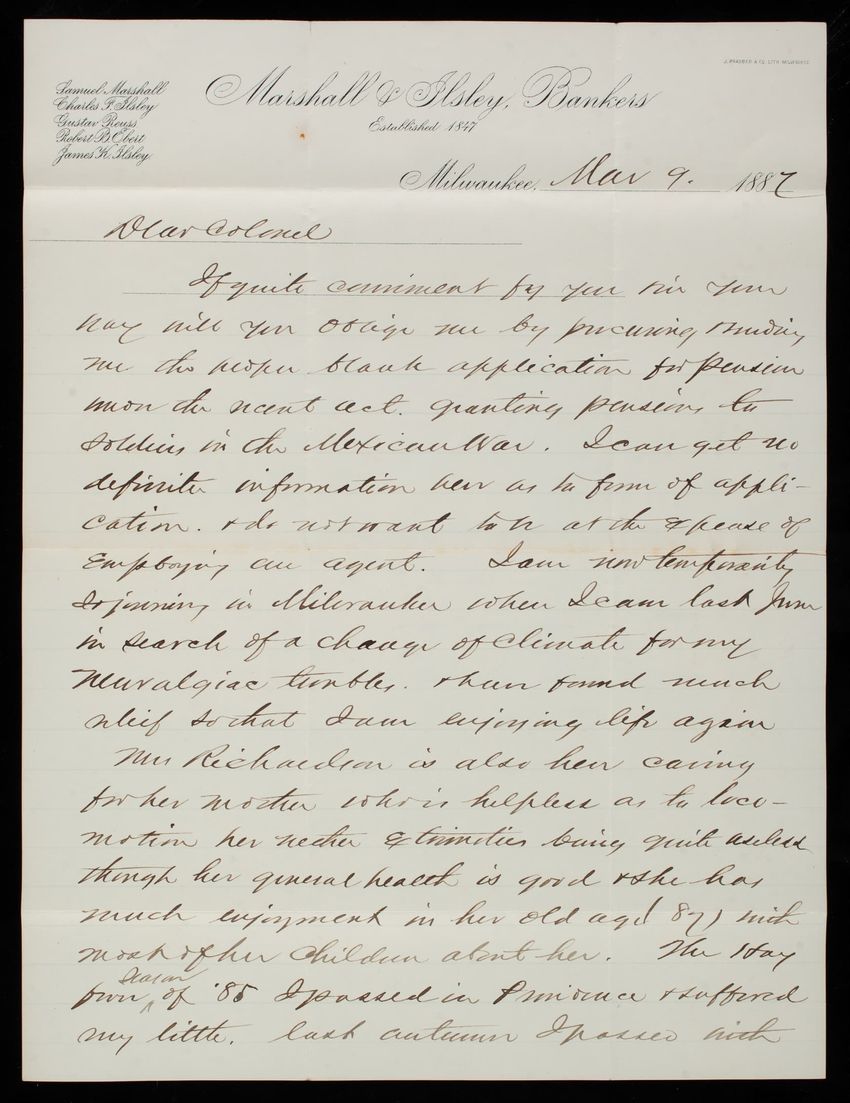 J. KNAUBER & CO. LITH. MILWAUKEE
Samuel Marshall
Charles F. Ilsley
Gustav Reuss
Robert B. Ebert
James K. Ilsley
Marshall & Ilsley, Bankers
Established 1847
Milwaukee, Mar 9. 1887
Dear Colonel
If quite convinient for you & in your
way will you oblige me by procuring & sending
me the proper blank application for Pension
under the recent act. granting pensions to
Soldiers in the Mexican War. I can get no
definite information here as to form of appli-
cation. & do not want to be at the Expense of
Employing an agent. I am now temporarily
Sojourning in Milwaukee where I came last June
in search of a change of Climate for my
Neuralgiac troubles. & have found much
relief so that I am enjoying life again
Mrs Richardson is also here caring
for her mother who is helpless as to loco-
motion her nether Extremities being quite useless
though her general health is good & she has
much enjoyment in her old age (87) with
most of her children about her. The Hay
fever season of '85 I passed in Providence & suffered
my little. last autumn I passed with